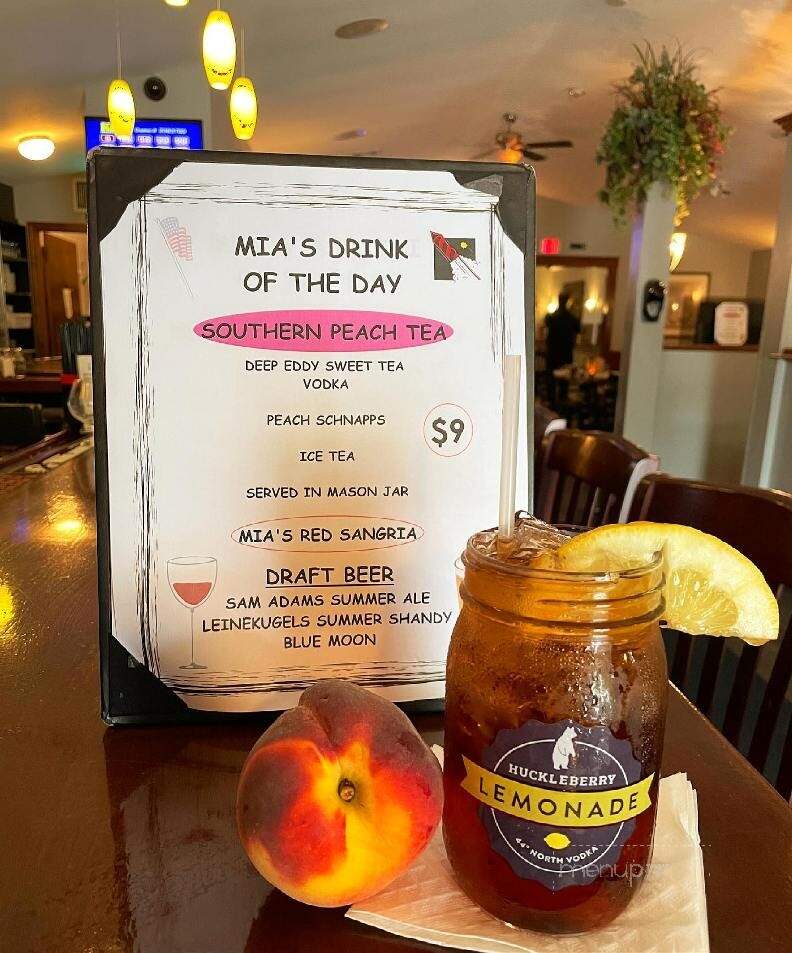 MIA'S DRINK
OF THE DAY
SOUTHERN PEACH TEA
DEEP EDDY SWEET TEA
VODKA
PEACH SCHNAPPS
$9
ICE TEA
SERVED IN MASON JAR
MIA'S RED SANGRIA
DRAFT BEER
SAM ADAMS SUMMER ALE
LEINEKUGELS SUMMER SHANDY
BLUE MOON
HUCKLEBERRY
LEMONADE
44° NORTH VODKA
menupix